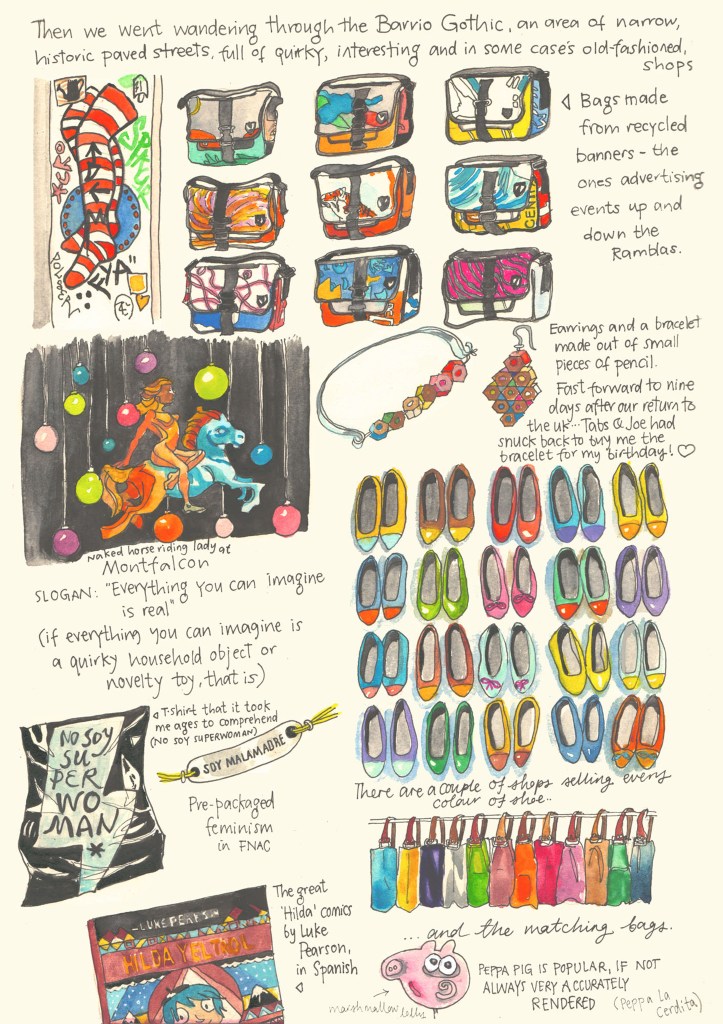 Then we went wandering through the Barrio Gothic, an area of narrow,
historic paved streets, full of quirky, interesting and in some case's old-fashioned,
shops
◁ Bags made
from recycled
banners - the
ones advertising
events up and
down the
Ramblas.
"YA"
Earrings and a bracelet
made out of small
pieces of pencil.
Fast forward to nine
days after our return to
the UK... Tabs & Joe had
snuck back to buy me the
bracelet for my birthday! ♡
Naked horse riding lady at
Montfalcon
SLOGAN: "Everything you can imagine
is real"
(if everything you can imagine is
a quirky household object or
novelty toy, that is)
◁ T-shirt that it took
me ages to comprehend
(NO SOY SUPERWOMAN)
NO SOY
SU-
PER
WO
MAN
*
SOY MALAMADRE
Pre-packaged
feminism
in FNAC
There are a couple of shops selling every
colour of shoe..
...and the matching bags.
The great
'Hilda' comics
by Luke
Pearson,
in Spanish
LUKE PEARSON
HILDA Y EL TROL
PEPPA PIG IS POPULAR, IF NOT
ALWAYS VERY ACCURATELY
RENDERED (Peppa La
Cerdita)
marshmallow lolly